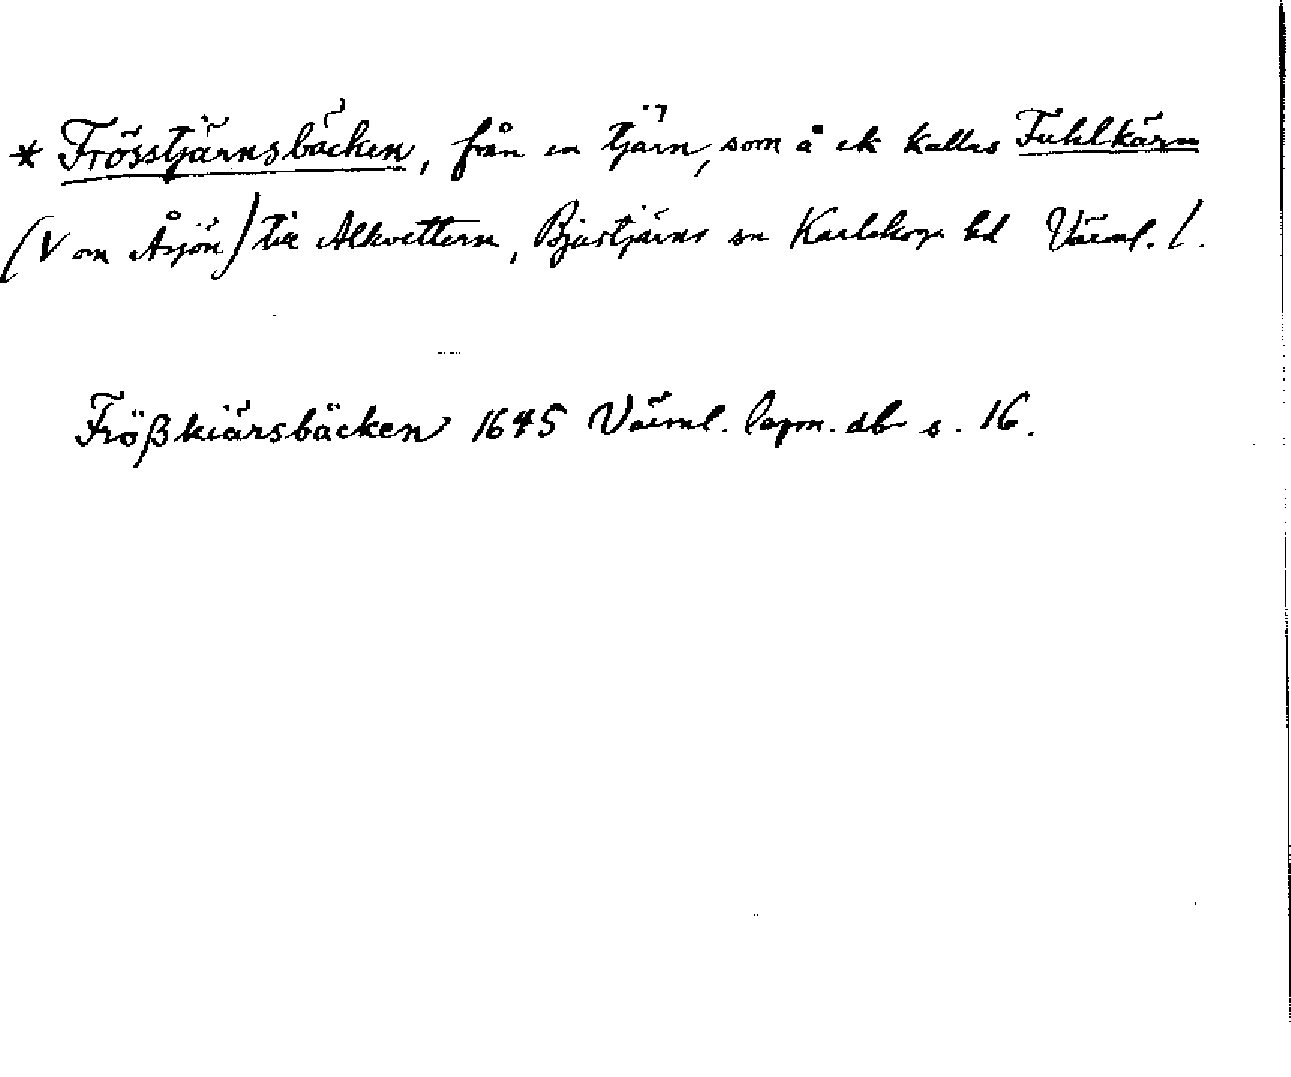 * Frösstjärnsbäcken, från en tjärn, som å ek kallas Fuhlkärn
(V om Åsjön) till Alkvettern, Bjurtjärns sn Karlskoga bd Värml. l.
Frößkiärsbäcken 1645 Värml. lagm. db s. 16.